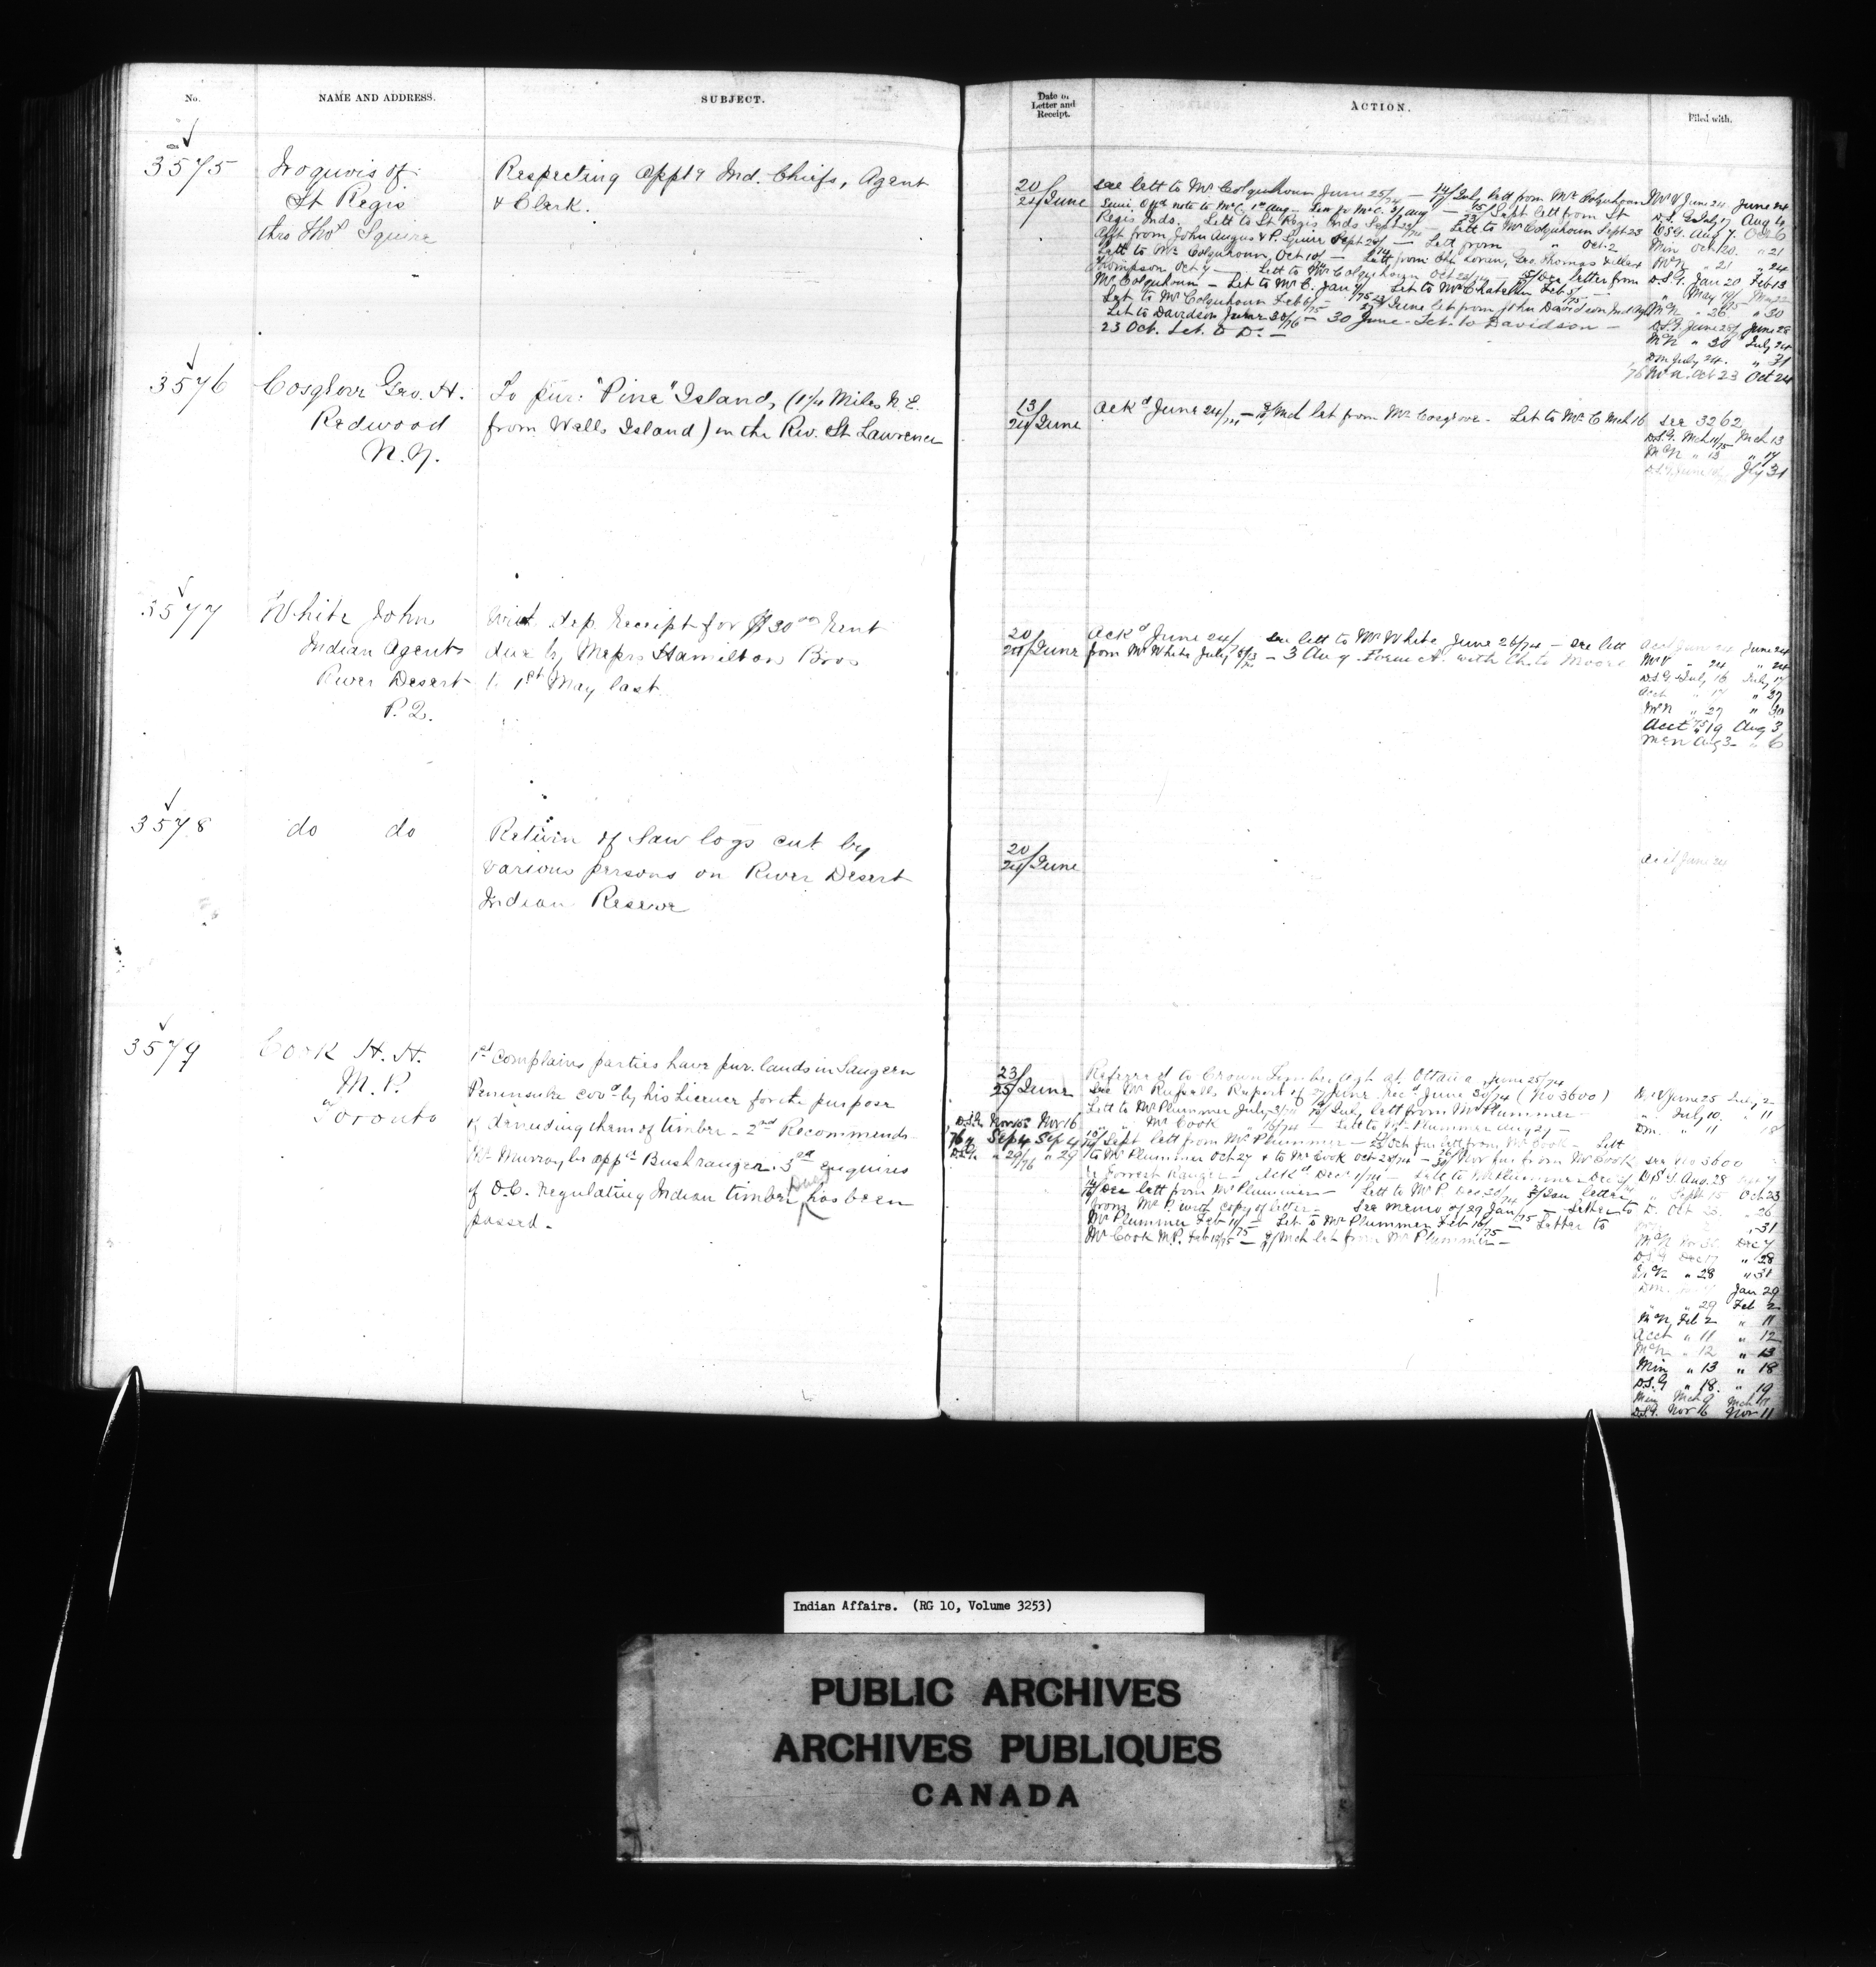 No.
NAME AND ADDRESS.
SUBJECT.
3575
Iroquois of
St Regis
thro Thos Squire
Respecting
Ind. Chiefs, Agent
& Clerk.
3576
Cosgrove Geo. H.
Redwood
N.Y.
To pur: "Pine" Island, (1¼ Miles N.E.
from Wells Island) in the Riv. St Lawrence
3577
White John
Indian Agent
River Desert
P.Q.
dep. Receipt for $30.00 Rent
due by Messrs Hamilton Bros
to 1st May last
3578
do do
Return of Saw logs cut by
various persons on River Desert
Indian Reserve
3579
Cook H. H.
M.P.
Toronto
1st Complains parties have pur. lands in Saugeen
Peninsula cov'd by his License for the purpose
of denuding them of timber - 2nd Recommends
Mr Murray be app'd Bushranger. 3rd enquires
of O.C. Regulating Indian timber Dues has been
passed -
Date of
Letter and
Receipt.
ACTION.
Filed with.
20/24 June
see lett to Mr Colquhoun June 25/74 - 14/17 July lett from Mr Colquhoun
Regis Inds. Lett to St Regis Inds Sept 23/74 - Lett to Mr Colquhoun Sept 23
from John Angus & P. Squire Sept 28/ - Lett from " Oct 2
Lett to Mr Colquhoun, Oct 10/74 - Lett from Geo. Thomas
Thompson Oct 7 - Lett to Mr Colquhoun Oct 22/74 - Dec letter from
Mr Colquhoun - Let to Mr C. Jan Let to Mr Feb 5/75 -
Let. to Mr Colquhoun Feb 6/75 - June let from John Davidson
Let to Davidson June 30/76 - 30 June - Let. to Davidson -
23 Oct. Let. to D. -
June 24 June 24
D.S.G. July 17 Aug 4
D.S.G. Aug 7. Oct 6
Min Oct 20. " 21
McN " 21 " 24
D.S.G. Jan 20 Feb 13
" May 19/75 May 22
McN " 26 " 30
D.S.G. June 28/ June 28
McN " 30 July 24
Dm July 24. " 31
76 McN. Oct 23 Oct 24
13/24 June
Ack'd June 24/74 - Mch let from Mr Cosgrove - Let to Mr C Mch 16
see 3262
D.S.G. Mch 11/75 Mch 13
McN " 13 " 17
D.S.G. June July 31
20/24 June
Ack'd June 24/ see lett to Mr White June 26/74 - see lett
from Mr White July - 3 Aug. Form A. with Ch. to Moore
Acct June 24 June 24
McV " 24 " 24
D.S.G. July 16 July 17
Acct " 17 " 27
McN " 27 " 30
Acct 75 " 19 Aug 3
McN Aug 3 - " 6
20/24 June
Acct June 24
23/25 June
Referred to Crown Timber Agt at Ottawa June 25/74
see Mr Report of 27 June, rec'd June 30/74 (No 3600)
Lett to Mr Plummer July 3/74 July lett from Mr Plummer
" " Mr Cook " 16/74 - Lett to Mr Plummer Aug 29 -
Sept lett from Mr Plummer - Oct fur lett from Mr Cook - Lett
to Mr Plummer Oct 27 & to Mr Cook Oct 28/74 - Nov fur from Mr Cook
Forrest Ranger - Ack'd Dec 1/74 - Lett to Mr Plummer Dec
Dec lett from Mr Plummer - Lett to Mr P. Dec 20/74 Jan letter
from Mr P. with copy of letter - See memo of 29 Jan/75 - Letter to
Mr Plummer Feb 11/75 - Let to Mr Plummer Feb 16/75 - Letter to
Mr Cook M.P. Feb 18/75 - Mch let from Mr Plummer -
D.S.G. Nov 16
76 Sept 4 Sep 4
D.S.G. " 29/76 " 29
McV June 25 July 2
" July 10. " 11
Dm. " 11 " 18
see No 3600
D.S.G. Aug. 28
" Sept 15 Oct 23
D. Oct 23. " 26
" 31
McN Nov 30 Dec 7
D.S.G. Dec 17 " 28
McN " 28 " 31
Dm. Jan 29
" " 29 Feb 2
McN Feb 2 " 11
Acct " 11 " 12
McN " 12 " 13
Min " 13 " 18
D.S.G " 18. " 19
Min Mch 9 Mch 11
D.S.G. Nov 16 Nov 11
Indian Affairs. (RG 10, Volume 3253)
PUBLIC ARCHIVES
ARCHIVES PUBLIQUES
CANADA